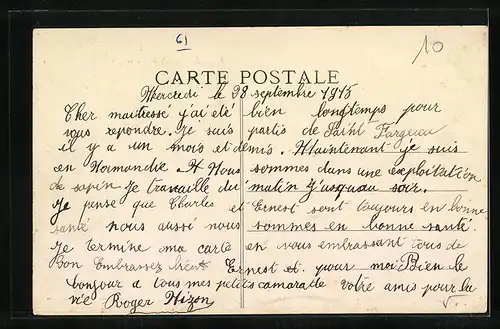 61
10
CARTE POSTALE
Mercredi le 28 septembre 1915
Cher maitresse j'ai été bien longtemps pour
vous repondre. Je suis partis de Saint Fargeau
il y a un mois et demis. Maintenant je suis
en Normandie. Nous sommes dans une exploitation
de sapin je travaille du matin j'usquau soir.
Je pense que Charles et Ernest sont toujours en bonne
santé nous aussi nous sommes en bonne santé.
Je termine ma carte en vous embrassant tous de
Bon Embrassez Ernest et pour moi Bien le
bonjour a tous mes petits camarade votre amis pour la
vie Roger